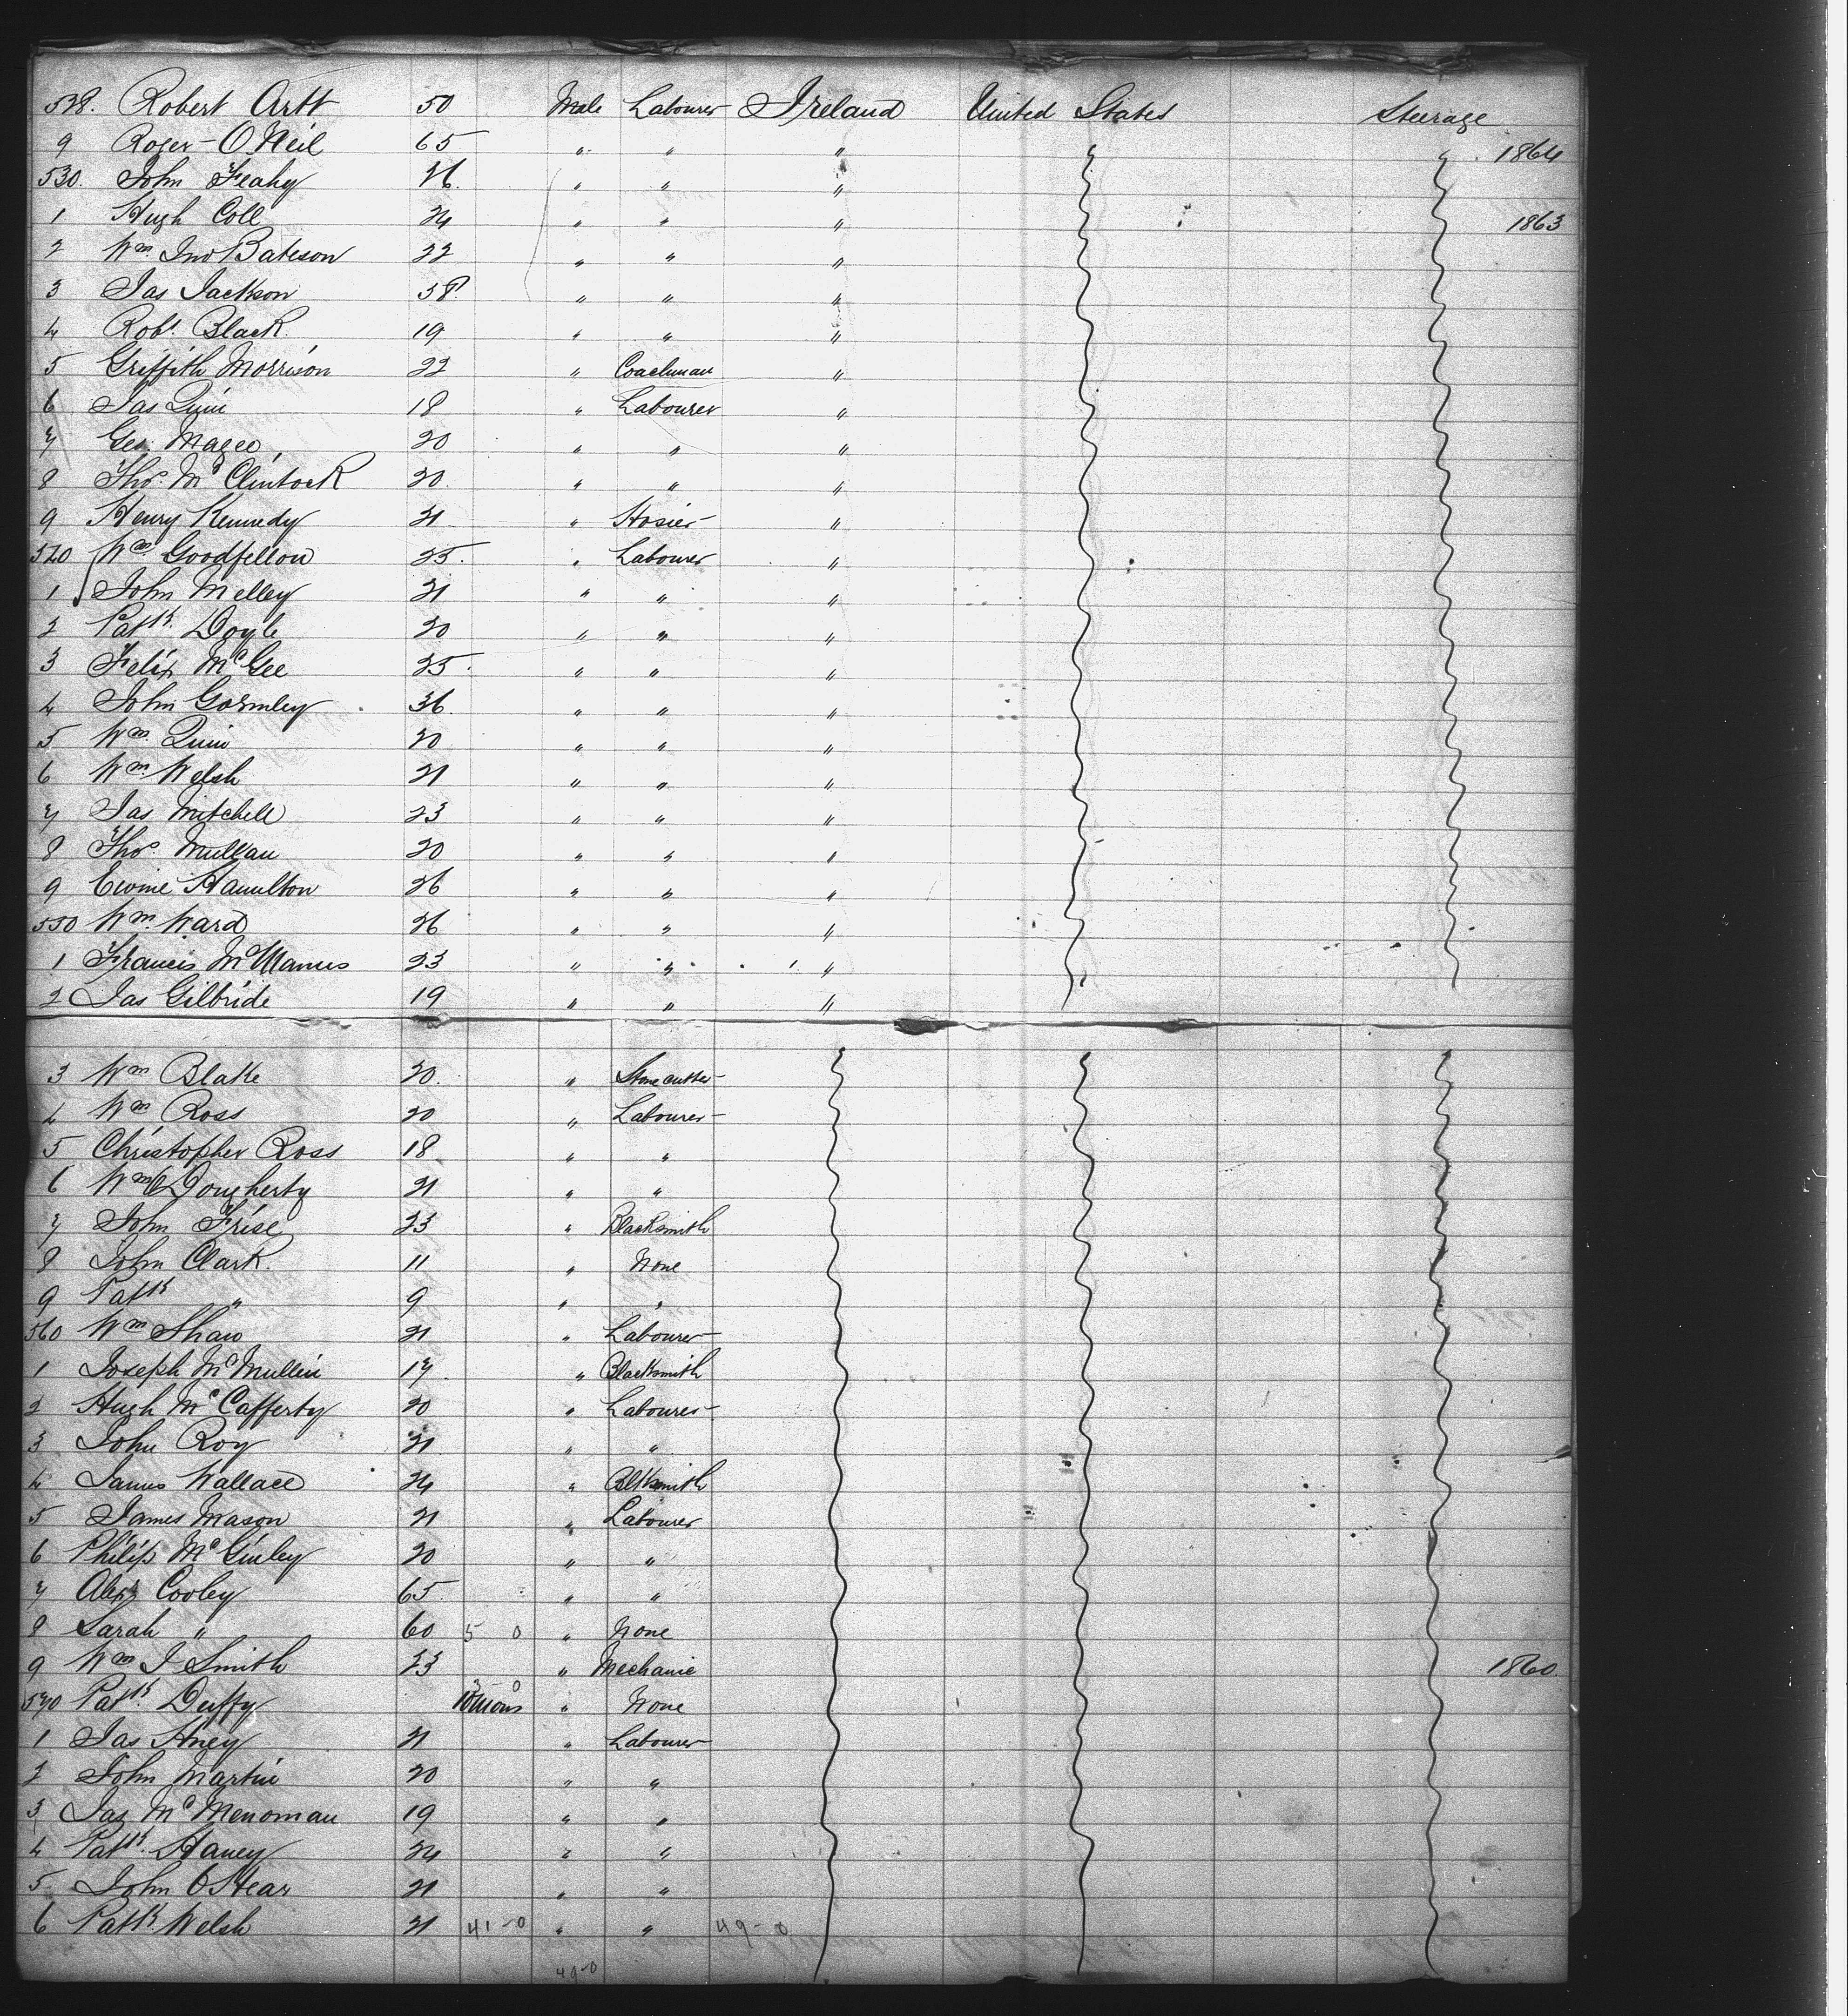 528. Robert Artt 50 Male Labourer Ireland United States Steerage
9 Roger O.Neil 65 " " " 1864
530. John Feahy 26. " " "
1 Hugh Coll 24 " " " 1863
2 Wm. Jno Bateson 22 " " "
3 Jas Jackson 38. " " "
4 Robt. Black 19 " " "
5 Griffith Morrison 22 " Coachman "
6 Jas Quin 18 " Labourer "
7 Geo. Magee 20 " " "
8 Thos. Mc Clintock 20. " " "
9 Henry Kennedy 21 " Hosier "
540 Wm. Goodfellow 25. " Labourer "
1 John Melley 21 " " "
2 Patk. Doyle 20 " " "
3 Felix McGee 25. " " "
4 John Gormley 36. " " "
5 Wm. Quin 20 " " "
6 Wm. Welsh 21 " " "
7 Jas Mitchell 23 " " "
8 Thos. Mullan 20 " " "
9 Ewine Hamilton 26 " " "
550 Wm. Ward 26 " " "
1 Francis McManus 23 " " "
2 Jas Gilbride 19 " " "
3 Wm Blake 20. " Stone cutter
4 Wm Ross 20 " Labourer
5 Christopher Ross 18 " "
6 Wm Dougherty 21 " "
7 John Frise 23 " Blacksmith
8 John Clark. 11 " None
9 Patk " 9 " "
560 Wm Shaw 21 " Labourer
1 Joseph McMullin 17. " Blacksmith
2 Hugh Mc Cafferty 20 " Labourer
3 John Roy 21. " "
4 James Wallace 24 " Blksmith
5 James Mason 21 " Labourer
6 Philip McGinley 20 " "
7 Alexr Cooley 65. " "
8 Sarah " 60 5 0 " None
9 Wm J Smith 23 " Mechanic 1860.
3-0
570 Patk. Duffy 10 mons " None
1 Jas Haey 21 " Labourer
2 John Martin 20 " "
3 Jas McMenoman 19 " "
4 Patk. Haney 24 " "
5 John O'Hear 21 " "
6 Patk. Welsh 21 41-0 " " 49-0
49-0